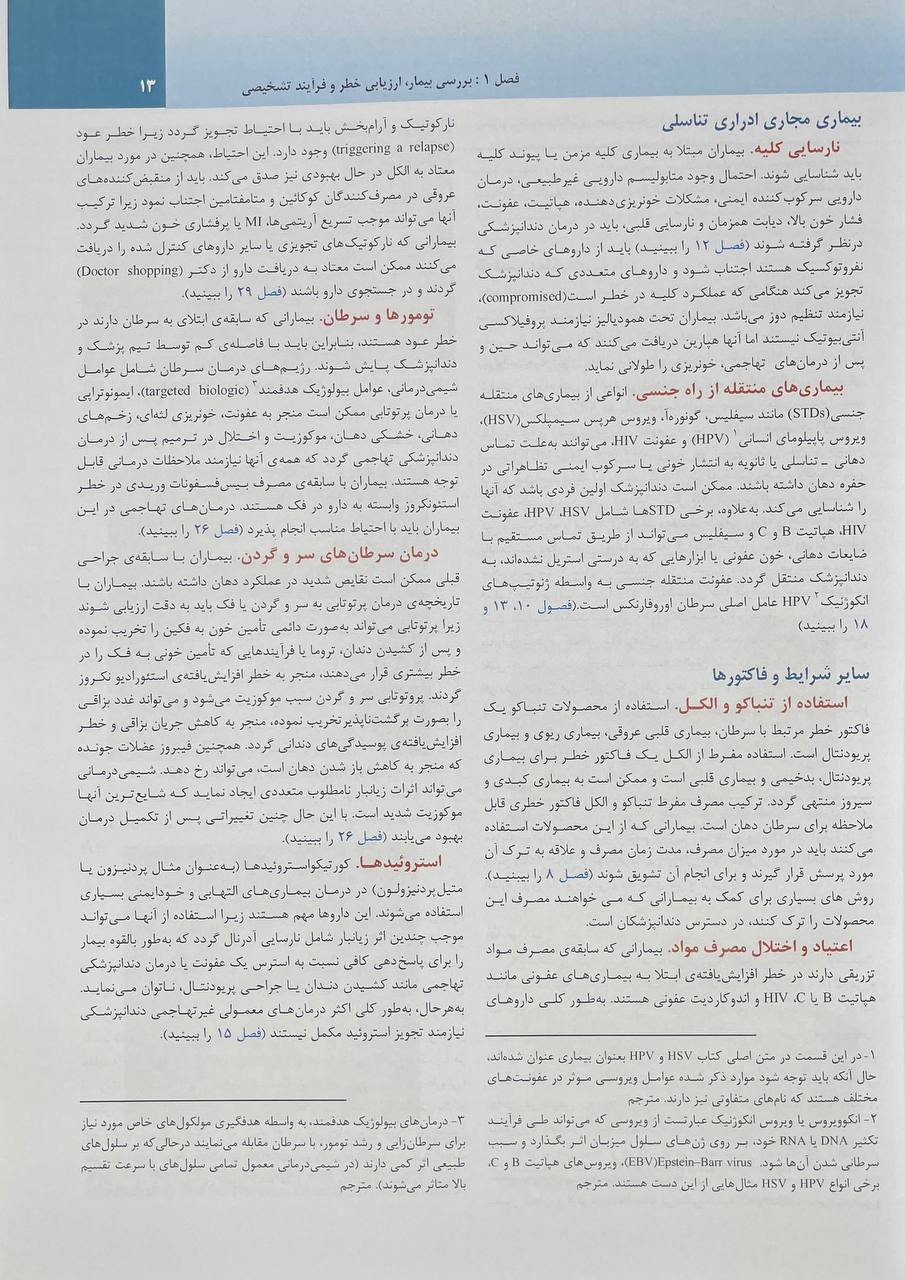 فصل ۱ : بررسی بیمار، ارزیابی خطر و فرآیند تشخیصی
۱۳
بیماری مجاری ادراری تناسلی
نارسایی کلیه. بیماران مبتلا به بیماری کلیه مزمن یا پیوند کلیه
باید شناسایی شوند. احتمال وجود متابولیسم دارویی غیرطبیعی، درمان
دارویی سرکوب‌کننده ایمنی، مشکلات خونریزی‌دهنده، هپاتیت، عفونت،
فشار خون بالا، دیابت همزمان و نارسایی قلبی، باید در درمان دندانپزشکی
درنظر گرفته شوند (فصل ۱۲ را ببینید) باید از داروهای خاصی که
نفروتوکسیک هستند اجتناب شود و داروهای متعددی که دندانپزشک
تجویز می‌کند هنگامی که عملکرد کلیه در خطر است(compromised)،
نیازمند تنظیم دوز می‌باشد. بیماران تحت همودیالیز نیازمند پروفیلاکسی
آنتی‌بیوتیک نیستند اما آنها هپارین دریافت می‌کنند که می‌تواند حین و
پس از درمان‌های تهاجمی، خونریزی را طولانی نماید.
بیماری‌های منتقله از راه جنسی. انواعی از بیماری‌های منتقله
جنسی(STDs) مانند سیفلیس، گونوره‌آ، ویروس هرپس سیمپلکس(HSV)،
ویروس پاپیلومای انسانی۱ (HPV) و عفونت HIV، می‌توانند به‌علت تماس
دهانی - تناسلی یا ثانویه به انتشار خونی یا سرکوب ایمنی تظاهراتی در
حفره دهان داشته باشند. ممکن است دندانپزشک اولین فردی باشد که آنها
را شناسایی می‌کند. به‌علاوه، برخی STDها شامل HPV ،HSV، عفونت
HIV، هپاتیت B و C و سیفلیس می‌تواند از طریق تماس مستقیم با
ضایعات دهانی، خون عفونی یا ابزارهایی که به درستی استریل نشده‌اند، به
دندانپزشک منتقل گردد. عفونت منتقله جنسی به واسطه ژنوتیپ‌های
انکوژنیک۲ HPV عامل اصلی سرطان اوروفارنکس است.(فصول ۱۰، ۱۳ و
۱۸ را ببینید)
سایر شرایط و فاکتورها
استفاده از تنباکو و الکل. استفاده از محصولات تنباکو یک
فاکتور خطر مرتبط با سرطان، بیماری قلبی عروقی، بیماری ریوی و بیماری
پریودنتال است. استفاده مفرط از الکل یک فاکتور خطر برای بیماری
پریودنتال، بدخیمی و بیماری قلبی است و ممکن است به بیماری کبدی و
سیروز منتهی گردد. ترکیب مصرف مفرط تنباکو و الکل فاکتور خطری قابل
ملاحظه برای سرطان دهان است. بیمارانی که از این محصولات استفاده
می‌کنند باید در مورد میزان مصرف، مدت زمان مصرف و علاقه به ترک آن
مورد پرسش قرار گیرند و برای انجام آن تشویق شوند (فصل ۸ را ببینید).
روش های بسیاری برای کمک به بیمارانی که می خواهند مصرف این
محصولات را ترک کنند، در دسترس دندانپزشکان است.
اعتیاد و اختلال مصرف مواد. بیمارانی که سابقه‌ی مصرف مواد
تزریقی دارند در خطر افزایش‌یافته‌ی ابتلا به بیماری‌های عفونی مانند
هپاتیت B یا HIV ،C و اندوکاردیت عفونی هستند. به‌طور کلی داروهای
۱- در این قسمت در متن اصلی کتاب HSV و HPV بعنوان بیماری عنوان شده‌اند،
حال آنکه باید توجه شود موارد ذکر شده عوامل ویروسی موثر در عفونت‌های
مختلف هستند که نام‌های متفاوتی نیز دارند. مترجم
۲- انکوویروس یا ویروس انکوژنیک عبارتست از ویروسی که می‌تواند طی فرآیند
تکثیر DNA یا RNA خود، بر روی ژن‌های سلول میزبان اثر بگذارد و سبب
سرطانی شدن آن‌ها شود. Epstein–Barr virus(EBV)، ویروس‌های هپاتیت B و C،
برخی انواع HPV و HSV مثال‌هایی از این دست هستند. مترجم
نارکوتیک و آرام‌بخش باید با احتیاط تجویز گردد زیرا خطر عود
(triggering a relapse) وجود دارد. این احتیاط، همچنین در مورد بیماران
معتاد به الکل در حال بهبودی نیز صدق می‌کند. باید از منقبض‌کننده‌های
عروقی در مصرف‌کنندگان کوکائین و متامفتامین اجتناب نمود زیرا ترکیب
آنها می‌تواند موجب تسریع آریتمی‌ها، MI یا پرفشاری خون شدید گردد.
بیمارانی که نارکوتیک‌های تجویزی یا سایر داروهای کنترل شده را دریافت
می‌کنند ممکن است معتاد به دریافت دارو از دکتر (Doctor shopping)
گردند و در جستجوی دارو باشند (فصل ۲۹ را ببینید).
تومورها و سرطان. بیمارانی که سابقه‌ی ابتلای به سرطان دارند در
خطر عود هستند، بنابراین باید با فاصله‌ی کم توسط تیم پزشک و
دندانپزشک پایش شوند. رژیم‌های درمان سرطان شامل عوامل
شیمی‌درمانی، عوامل بیولوژیک هدفمند۳ (targeted biologic)، ایمونوتراپی
یا درمان پرتوتابی ممکن است منجر به عفونت، خونریزی لثه‌ای، زخم‌های
دهانی، خشکی دهان، موکوزیت و اختلال در ترمیم پس از درمان
دندانپزشکی تهاجمی گردد که همه‌ی آنها نیازمند ملاحظات درمانی قابل
توجه هستند. بیماران با سابقه‌ی مصرف بیس‌فسفونات وریدی در خطر
استئونکروز وابسته به دارو در فک هستند. درمان‌های تهاجمی در این
بیماران باید با احتیاط مناسب انجام پذیرد (فصل ۲۶ را ببینید).
درمان سرطان‌های سر و گردن. بیماران با سابقه‌ی جراحی
قبلی ممکن است نقایص شدید در عملکرد دهان داشته باشند. بیماران با
تاریخچه‌ی درمان پرتوتابی به سر و گردن یا فک باید به دقت ارزیابی شوند
زیرا پرتوتابی می‌تواند به‌صورت دائمی تأمین خون به فکین را تخریب نموده
و پس از کشیدن دندان، تروما یا فرآیندهایی که تأمین خونی به فک را در
خطر بیشتری قرار می‌دهند، منجر به خطر افزایش‌یافته‌ی استئورادیو نکروز
گردند. پروتوتابی سر و گردن سبب موکوزیت می‌شود و می‌تواند غدد بزاقی
را بصورت برگشت‌ناپذیرتخریب نموده، منجر به کاهش جریان بزاقی و خطر
افزایش‌یافته‌ی پوسیدگی‌های دندانی گردد. همچنین فیبروز عضلات جونده
که منجر به کاهش باز شدن دهان است، می‌تواند رخ دهد. شیمی‌درمانی
می‌تواند اثرات زیانبار نامطلوب متعددی ایجاد نماید که شایع‌ترین آنها
موکوزیت شدید است. با این حال چنین تغییراتی پس از تکمیل درمان
بهبود می‌یابند (فصل ۲۶ را ببینید).
استروئیدها. کورتیکواستروئیدها (به‌عنوان مثال پردنیزون یا
متیل‌پردنیزولون) در درمان بیماری‌های التهابی و خودایمنی بسیاری
استفاده می‌شوند. این داروها مهم هستند زیرا استفاده از آنها می‌تواند
موجب چندین اثر زیانبار شامل نارسایی آدرنال گردد که به‌طور بالقوه بیمار
را برای پاسخ‌دهی کافی نسبت به استرس یک عفونت یا درمان دندانپزشکی
تهاجمی مانند کشیدن دندان یا جراحی پریودنتال، ناتوان می‌نماید.
به‌هرحال، به‌طور کلی اکثر درمان‌های معمولی غیرتهاجمی دندانپزشکی
نیازمند تجویز استروئید مکمل نیستند (فصل ۱۵ را ببینید).
۳- درمان‌های بیولوژیک هدفمند، به واسطه هدفگیری مولکول‌های خاص مورد نیاز
برای سرطان‌زایی و رشد تومور، با سرطان مقابله می‌نمایند درحالی‌که بر سلول‌های
طبیعی اثر کمی دارند (در شیمی‌درمانی معمول تمامی سلول‌های با سرعت تقسیم
بالا متاثر می‌شوند). مترجم